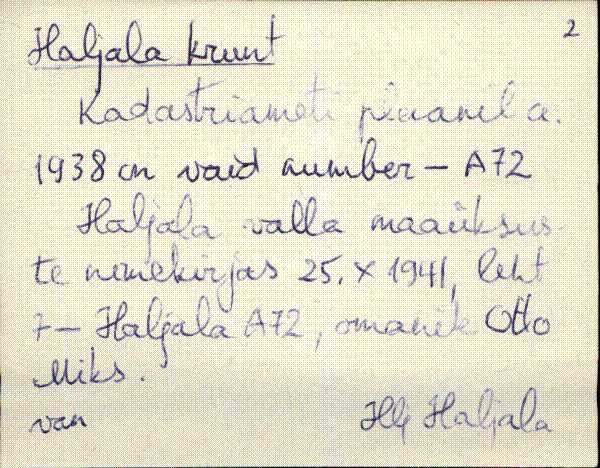 2
Haljala krunt
Kadastriameti plaanil a.
1938 on vaid number - A72
Haljala valla maaüksus-
te nimekirjas 25. X 1941, leht
7 - Haljala A72, omanik Otto
Miks.
van Hlj Haljala